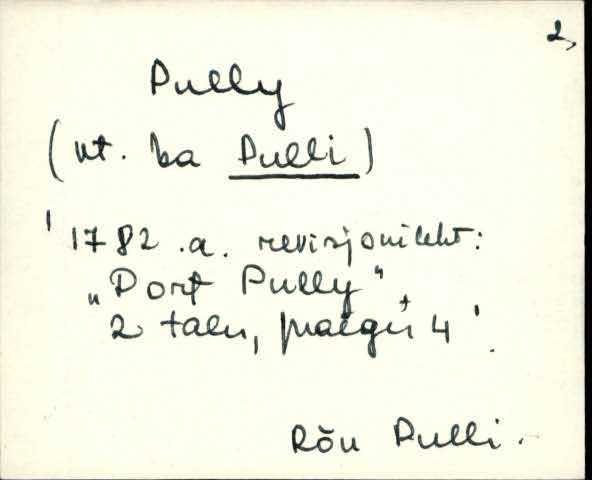 2,
Pully
(vt. ka Pulli)
' 1782.a. revisjonileht:
„Dorf Pully"
2 talu, praegu 4'.
Rõu Pulli.